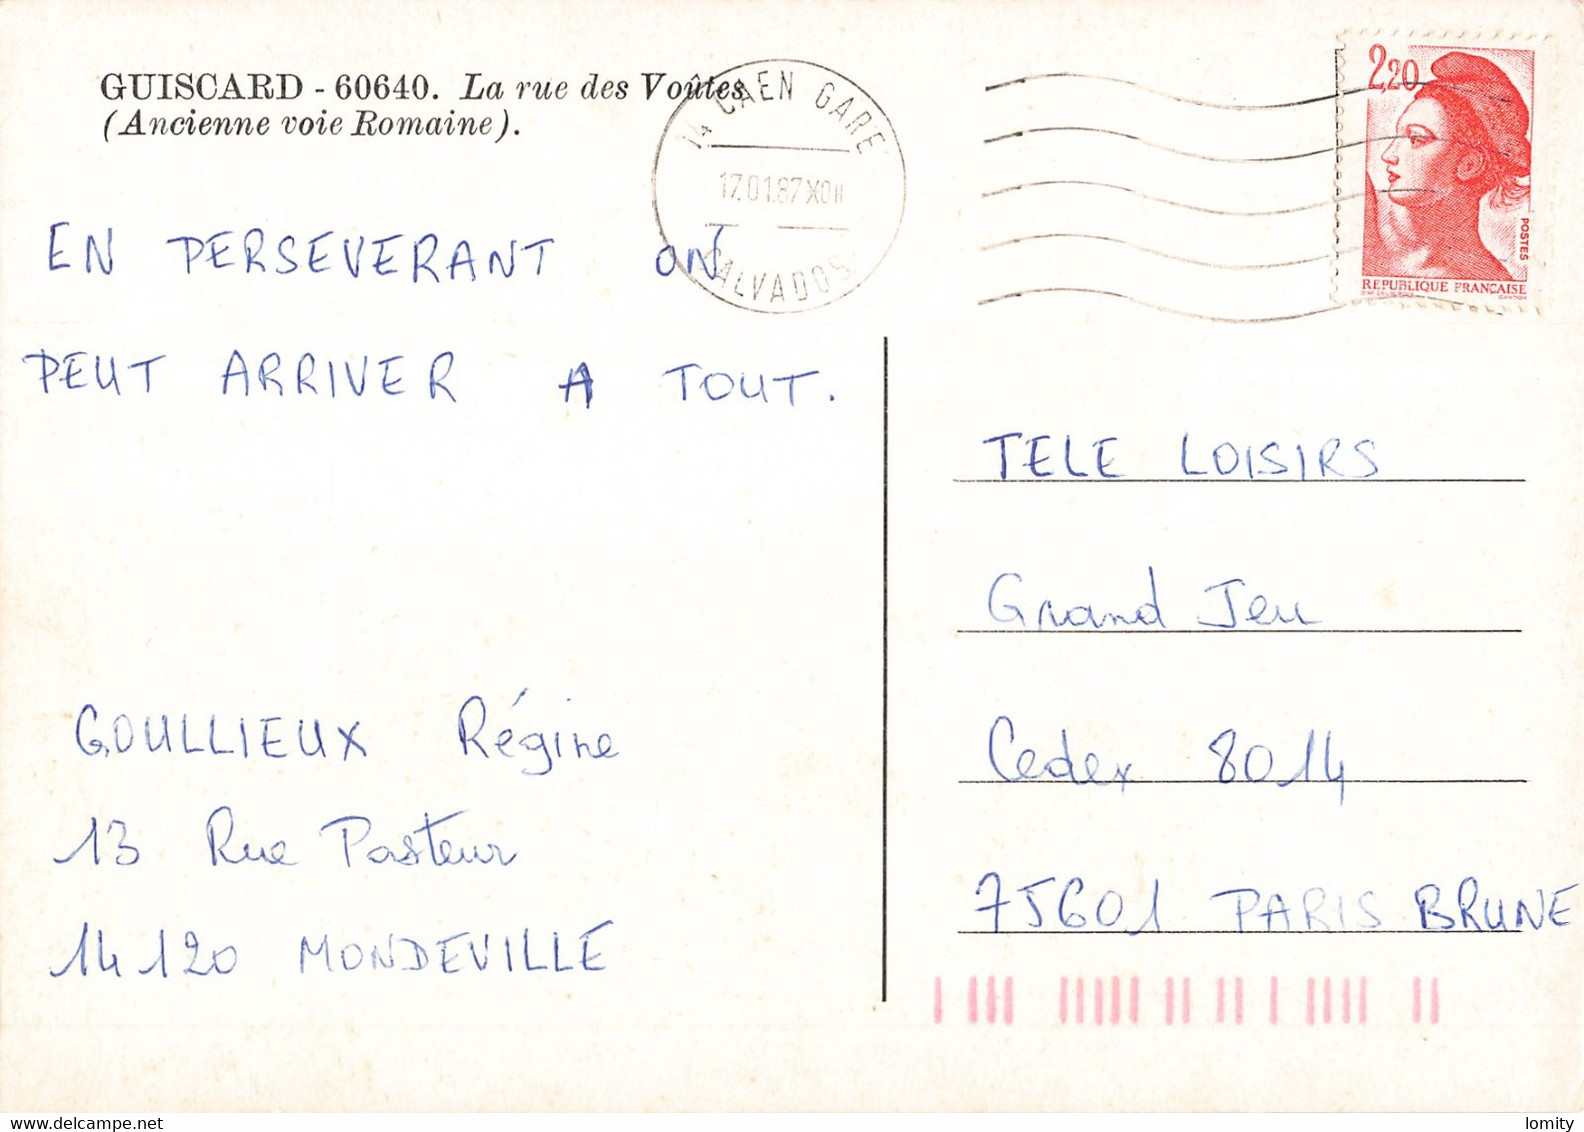 GUISCARD - 60640. La rue des Voûtes
(Ancienne voie Romaine).
14 CAEN GARE
17.01.87
CALVADOS
2,20
POSTES
REPUBLIQUE FRANÇAISE
EN PERSEVERANT ON
PEUT ARRIVER A TOUT.
TELE LOISIRS
Grand Jeu
Cedex 8014
75601 PARIS BRUNE
GOULLIEUX Régine
13 Rue Pasteur
14120 MONDEVILLE
www.delcampe.net
lomity